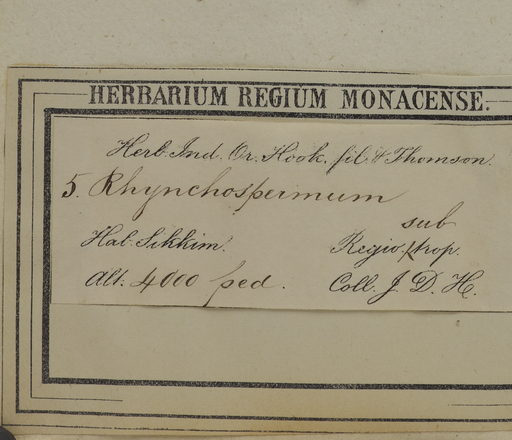 HERBARIUM REGIUM MONACENSE.
Herb. Ind. Or. Hook. fil. & Thomson.
5. Rhynchospermum
sub
Hab. Sikkim. Regio. trop.
Alt. 4000 ped. Coll. J. D. H.